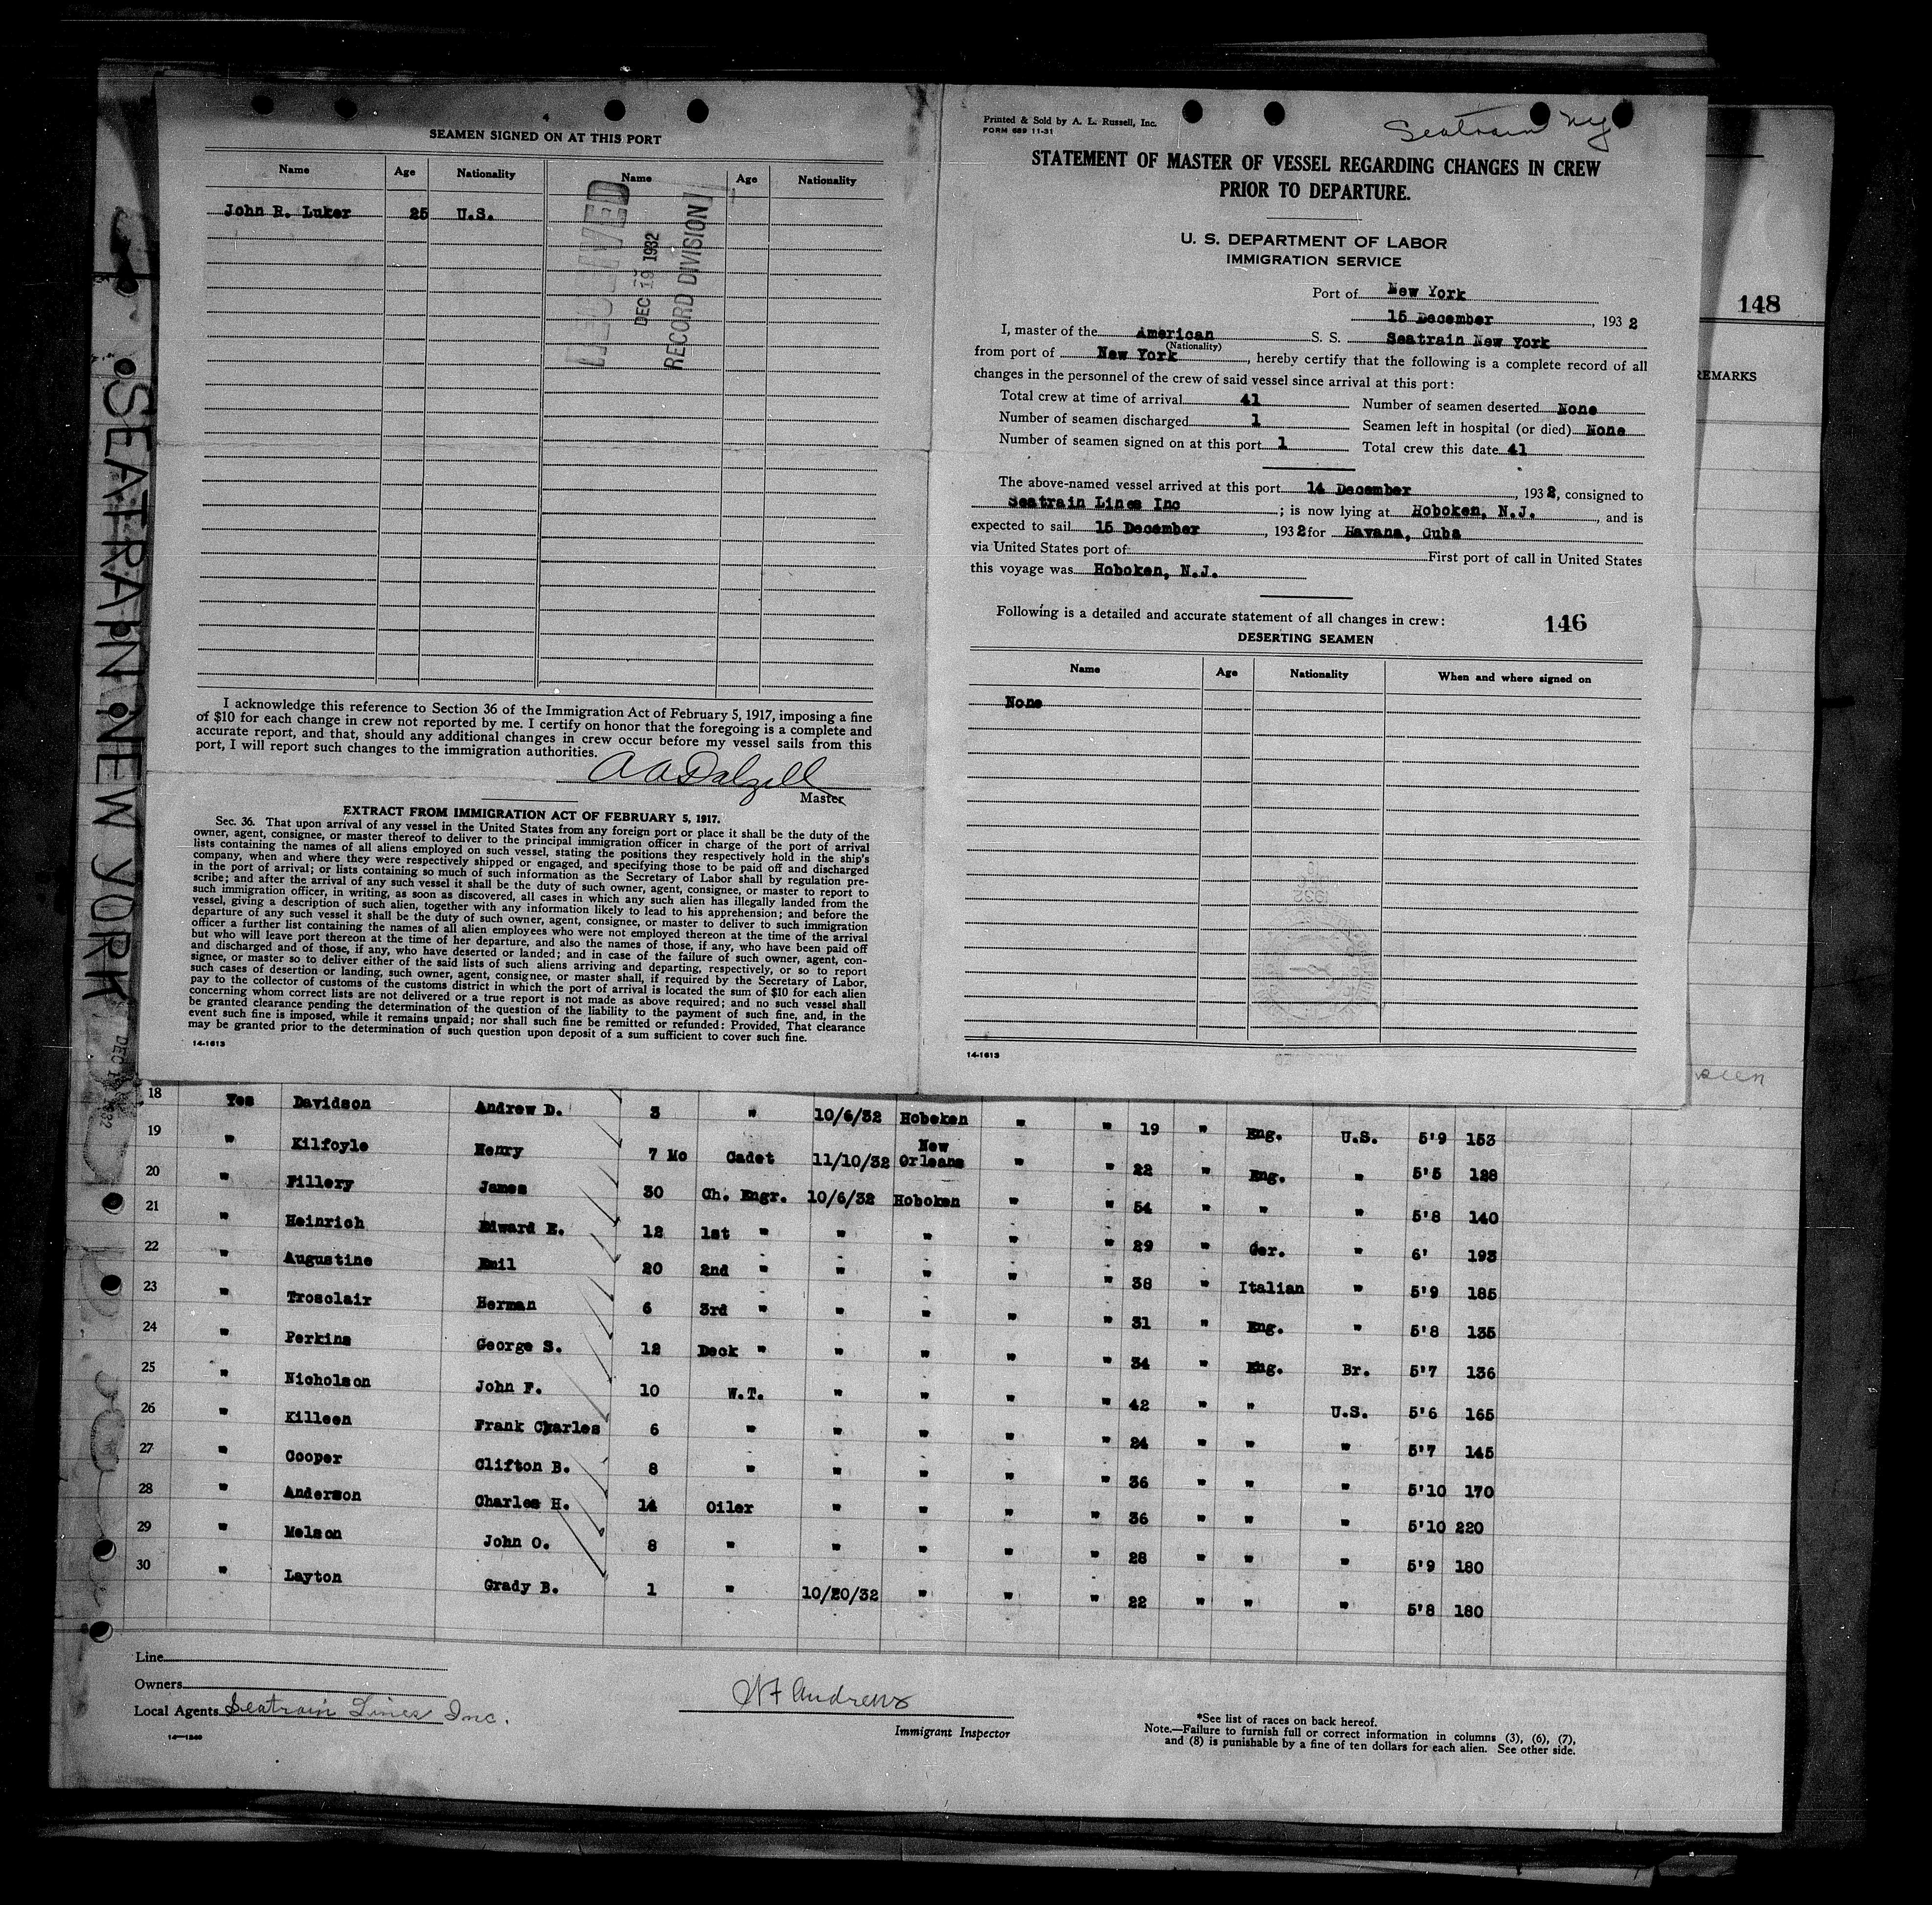 SEATRAIN NEW YORK
4
SEAMEN SIGNED ON AT THIS PORT
Name Age Nationality Name Age Nationality
John R. Luker 25 U.S.
RECEIVED
DEC 19 1932
RECORD DIVISION
I acknowledge this reference to Section 36 of the Immigration Act of February 5, 1917, imposing a fine
of $10 for each change in crew not reported by me. I certify on honor that the foregoing is a complete and
accurate report, and that, should any additional changes in crew occur before my vessel sails from this
port, I will report such changes to the immigration authorities.
A A Dalzell
Master
EXTRACT FROM IMMIGRATION ACT OF FEBRUARY 5, 1917.
Sec. 36. That upon arrival of any vessel in the United States from any foreign port or place it shall be the duty of the
owner, agent, consignee, or master thereof to deliver to the principal immigration officer in charge of the port of arrival
lists containing the names of all aliens employed on such vessel, stating the positions they respectively hold in the ship's
company, when and where they were respectively shipped or engaged, and specifying those to be paid off and discharged
in the port of arrival; or lists containing so much of such information as the Secretary of Labor shall by regulation pre-
scribe; and after the arrival of any such vessel it shall be the duty of such owner, agent, consignee, or master to report to
such immigration officer, in writing, as soon as discovered, all cases in which any such alien has illegally landed from the
vessel, giving a description of such alien, together with any information likely to lead to his apprehension; and before the
departure of any such vessel it shall be the duty of such owner, agent, consignee, or master to deliver to such immigration
officer a further list containing the names of all alien employees who were not employed thereon at the time of the arrival
but who will leave port thereon at the time of her departure, and also the names of those, if any, who have been paid off
and discharged and of those, if any, who have deserted or landed; and in case of the failure of such owner, agent, con-
signee, or master so to deliver either of the said lists of such aliens arriving and departing, respectively, or so to report
such cases of desertion or landing, such owner, agent, consignee, or master shall, if required by the Secretary of Labor,
pay to the collector of customs of the customs district in which the port of arrival is located the sum of $10 for each alien
concerning whom correct lists are not delivered or a true report is not made as above required; and no such vessel shall
be granted clearance pending the determination of the question of the liability to the payment of such fine, and, in the
event such fine is imposed, while it remains unpaid; nor shall such fine be remitted or refunded: Provided, That clearance
may be granted prior to the determination of such question upon deposit of a sum sufficient to cover such fine.
14-1613
Printed & Sold by A. L. Russell, Inc.
FORM 689 11-31
Seatrain NY
STATEMENT OF MASTER OF VESSEL REGARDING CHANGES IN CREW
PRIOR TO DEPARTURE.
U. S. DEPARTMENT OF LABOR
IMMIGRATION SERVICE
Port of New York
15 December, 1932
I, master of the American S. S. Seatrain New York
(Nationality)
from port of New York, hereby certify that the following is a complete record of all
changes in the personnel of the crew of said vessel since arrival at this port:
Total crew at time of arrival 41 Number of seamen deserted None
Number of seamen discharged 1 Seamen left in hospital (or died) None
Number of seamen signed on at this port 1 Total crew this date 41
The above-named vessel arrived at this port 14 December, 1932, consigned to
Seatrain Lines Inc; is now lying at Hoboken, N.J., and is
expected to sail 15 December, 1932 for Havana, Cuba
via United States port of First port of call in United States
this voyage was Hoboken, N.J.
Following is a detailed and accurate statement of all changes in crew:
146
DESERTING SEAMEN
Name Age Nationality When and where signed on
None
14-1613
148
REMARKS
18 Yes Davidson Andrew D. 3 " 10/6/32 Hoboken " " 19 " Eng. U.S. 5'9 153
19 " Kilfoyle Henry 7 Mo Cadet 11/10/32 New Orleans " " 22 " Eng. " 5'5 128
20 " Fillery James 30 Ch. Engr. 10/6/32 Hoboken " " 54 " " " 5'8 140
21 " Heinrich Edward E. 12 1st " " " " " 29 " Ger. " 6' 193
22 " Augustine Emil 20 2nd " " " " " 38 " Italian " 5'9 185
23 " Trosclair Herman 6 3rd " " " " " 31 " Eng. " 5'8 135
24 " Perkins George S. 12 Deck " " " " " 34 " Eng. Br. 5'7 136
25 " Nicholson John F. 10 W.T. " " " " 42 " " U.S. 5'6 165
26 " Killeen Frank Charles 6 " " " " " 24 " " " 5'7 145
27 " Cooper Clifton B. 8 " " " " " 36 " " " 5'10 170
28 " Anderson Charles H. 14 Oiler " " " " 36 " " " 5'10 220
29 " Melson John O. 8 " " " " " 28 " " " 5'9 180
30 " Layton Grady B. 1 " 10/20/32 " " " 22 " " " 5'8 180
Line
Owners
Local Agents Seatrain Lines Inc.
14-1240
Andrews
Immigrant Inspector
*See list of races on back hereof.
Note.—Failure to furnish full or correct information in columns (3), (6), (7),
and (8) is punishable by a fine of ten dollars for each alien. See other side.